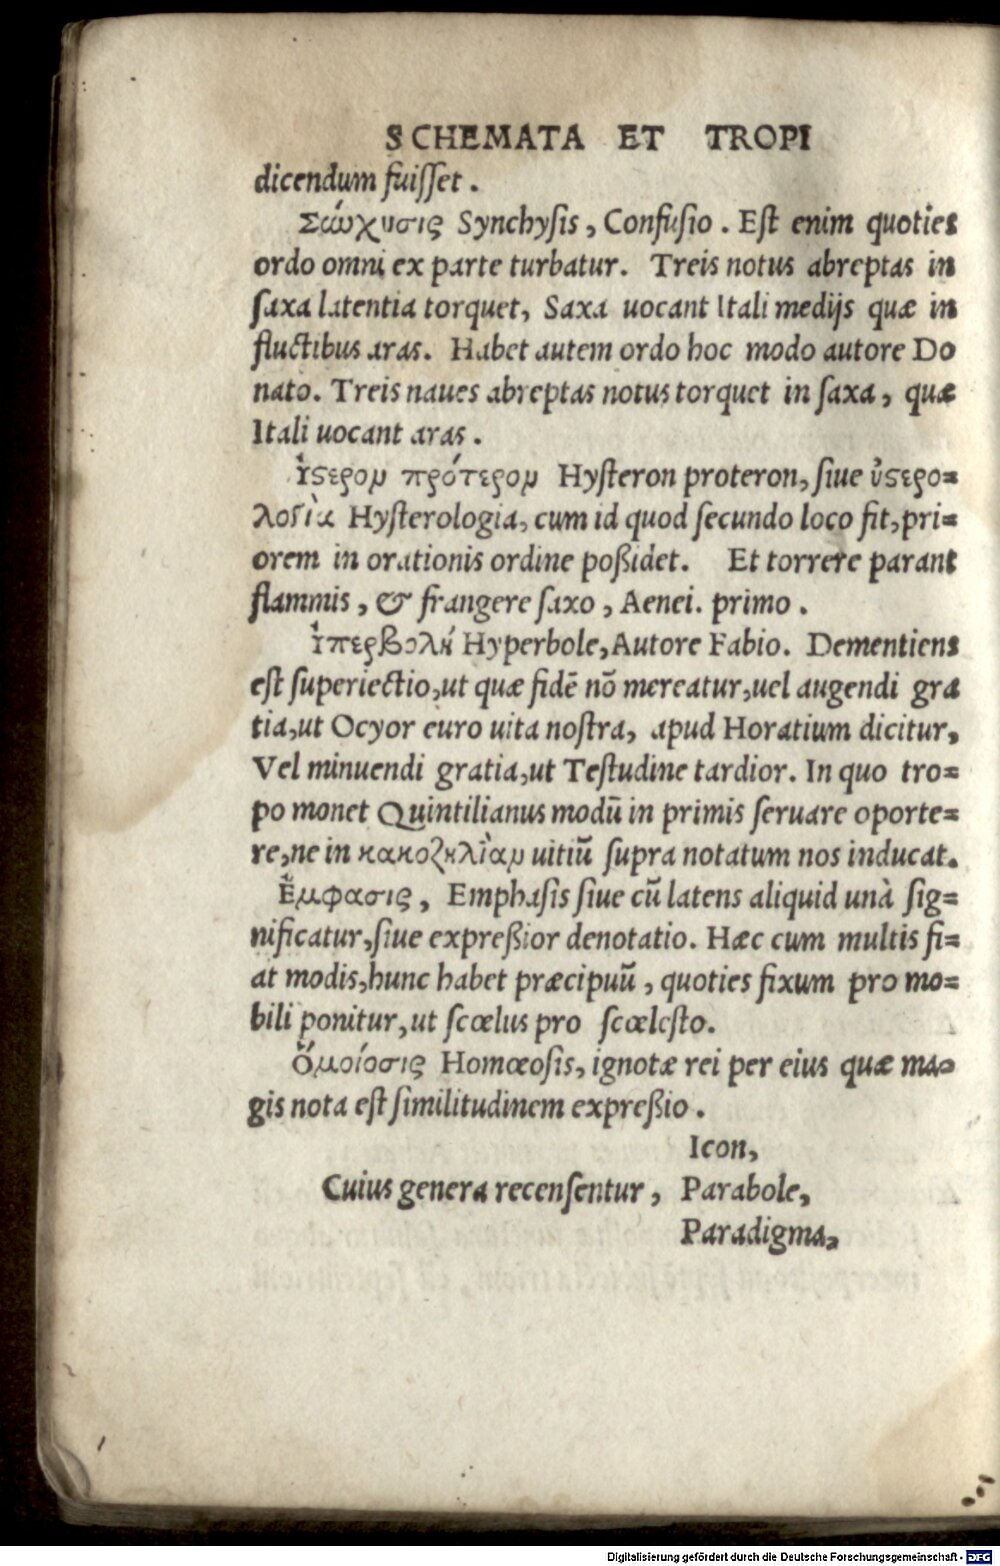 SCHEMATA ET TROPI
dicendum fuisset.
Σύγχυσις Synchysis, Confusio. Est enim quoties
ordo omni ex parte turbatur. Treis notus abreptas in
saxa latentia torquet, Saxa uocant Itali medijs quæ in
fluctibus aras. Habet autem ordo hoc modo autore Do
nato. Treis naues abreptas notus torquet in saxa, quæ
Itali uocant aras.
ὕστερον πρότερον Hysteron proteron, siue ὑστερο=
λογία Hysterologia, cum id quod secundo loco fit, pri=
orem in orationis ordine poßidet. Et torrere parant
flammis, & frangere saxo, Aenei. primo.
ὑπερβολή Hyperbole, Autore Fabio. Dementiens
est superiectio, ut quæ fidē nō mereatur, uel augendi gra
tia, ut Ocyor euro uita nostra, apud Horatium dicitur,
Vel minuendi gratia, ut Testudine tardior. In quo tro=
po monet Quintilianus modū in primis seruare oporte=
re, ne in κακοζηλίαν uitiū supra notatum nos inducat.
Ἔμφασις, Emphasis siue cū latens aliquid unà sig=
nificatur, siue expreßior denotatio. Hæc cum multis fi=
at modis, hunc habet præcipuū, quoties fixum pro mo=
bili ponitur, ut scœlus pro scœlesto.
Ὁμοίοσις Homœosis, ignotæ rei per eius quæ ma=
gis nota est similitudinem expreßio.
Icon,
Cuius genera recensentur, Parabole,
Paradigma,
Digitalisierung gefördert durch die Deutsche Forschungsgemeinschaft - DFG